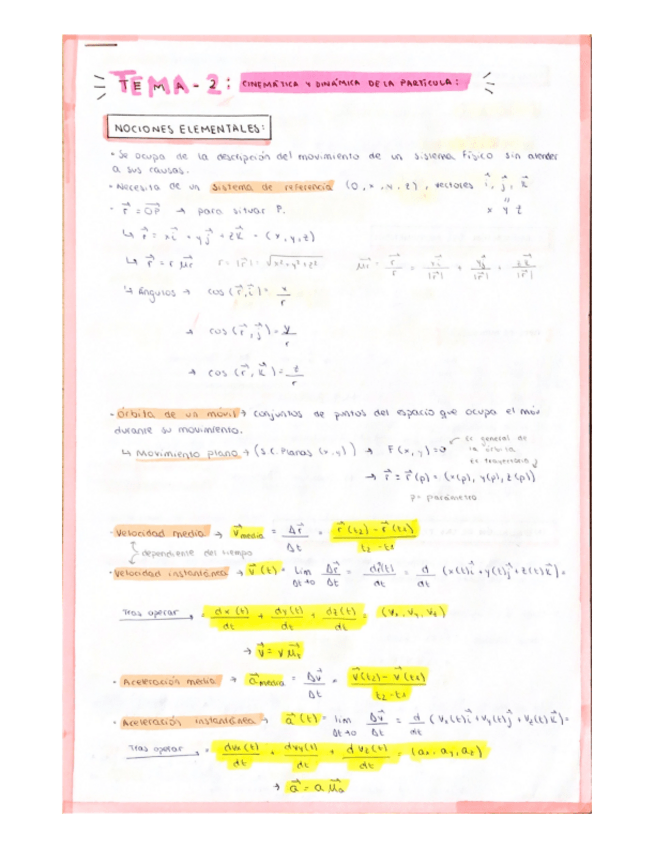 TEMA-2: CINEMÁTICA Y DINÁMICA DE LA PARTÍCULA:
NOCIONES ELEMENTALES:
· Se ocupa de la descripción del movimiento de un sistema físico sin atender
a sus causas.
· Necesita de un sistema de referencia (O, x, y, z), vectores i⃗, j⃗, k⃗
x y z
· r⃗ = OP⃗ → para situar P.
↳ r⃗ = xi⃗ + yj⃗ + zk⃗ = (x, y, z)
↳ r⃗ = r μr⃗ r = |r⃗| = √x²+y²+z² μr⃗ = r⃗/r = xi⃗/|r⃗| + yj⃗/|r⃗| + zk⃗/|r⃗|
↳ Ángulos → cos (r⃗, i⃗) = x/r
→ cos (r⃗, j⃗) = y/r
→ cos (r⃗, k⃗) = z/r
· Órbita de un móvil → conjuntos de puntos del espacio que ocupa el móv
durante su movimiento.
↳ Movimiento plano → (S.C. Planas (x,y)) → F(x, y) = 0 Ec general de
la órbita
Ec trayectoria
→ r⃗ = r⃗(p) = (x(p), y(p), z(p))
p = parámetro
· Velocidad media → v⃗media = Δr⃗/Δt = r⃗(t2) - r⃗(t1)/t2 - t1
dependiente del tiempo
· Velocidad instantánea → v⃗(t) = lim Δt→0 Δr⃗/Δt = dr⃗(t)/dt = d/dt (x(t)i⃗ + y(t)j⃗ + z(t)k⃗) =
Tras operar → = dx(t)/dt + dy(t)/dt + dz(t)/dt = (vx, vy, vz)
→ v⃗ = v μ⃗
· Aceleración media → a⃗media = Δv⃗/Δt = v⃗(t2) - v⃗(t1)/t2 - t1
· Aceleración instantánea → a⃗(t) = lim Δt→0 Δv⃗/Δt = d/dt (vx(t)i⃗ + vy(t)j⃗ + vz(t)k⃗) =
Tras operar → = dvx(t)/dt + dvy(t)/dt + dvz(t)/dt = (ax, ay, az)
→ a⃗ = a μ⃗a